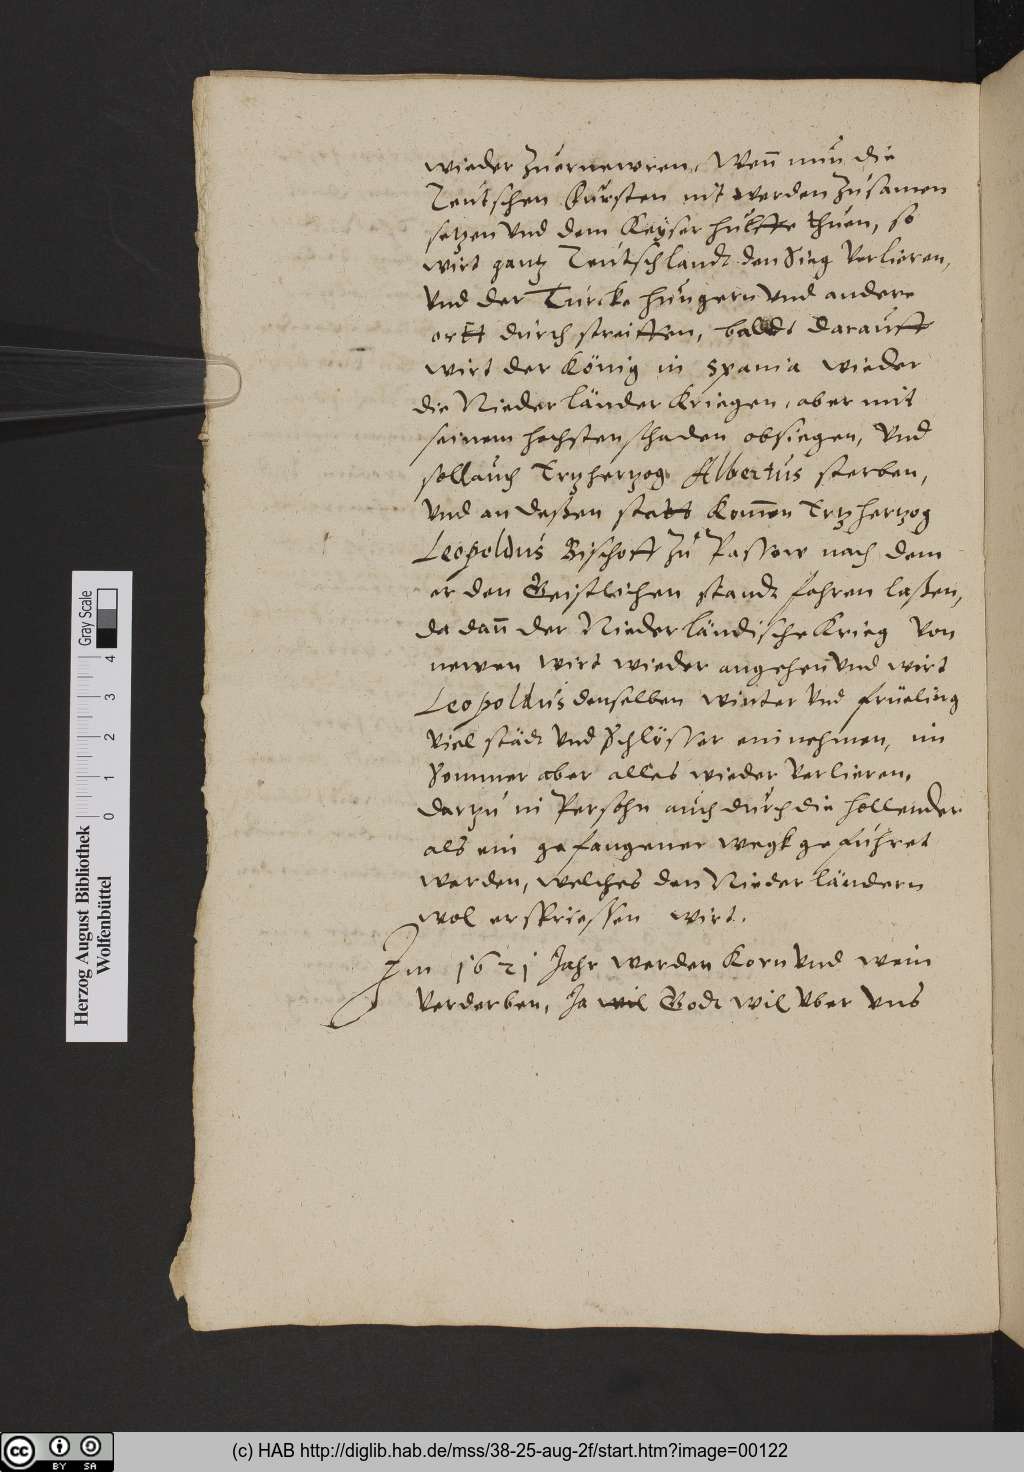 wieder zuernewren, Wen̄ nun die
Teutschen Fursten nit werden zusamen
setzen Vnd dem Keyser hulffe thuen, so
wirt gantz Teutschlandt den Sieg Verlieren,
Vnd der Turcke hungern Vnd andere
ortt durch streiffen, baldt darauff
wirt der König in Spania wieder
die Niederländer kriegen, aber mit
seinem hochsten schaden obsiegen, Vnd
soll auch Ertzhertzog Albertus sterben,
Vnd an deßen statt kom̄en Ertzhertzog
Leopoldus Bischoff zu Passow nach dem
er den Geistlichen standt fahren laßen,
da dan̄ der Niederländische krieg Von
newen wirt wieder angehen Vnd wirt
Leopoldus denselben winter Vnd früeling
Viel städt Vnd Schlösser einnehmen, im
Sommer aber alles wieder Verlieren,
dartzu in Persohn auch durch die hollender
als ein gefangener wegk gefuhret
werden, welches den Niederländern
wol erspriessen wirt.
Im 1621 Jahr werden Korn Vnd wein
Verderben, Ja wil Godt wil Vber Vns
Herzog August Bibliothek
Wolfenbüttel
Gray Scale
0 1 2 3 4
cc BY SA
(c) HAB http://diglib.hab.de/mss/38-25-aug-2f/start.htm?image=00122